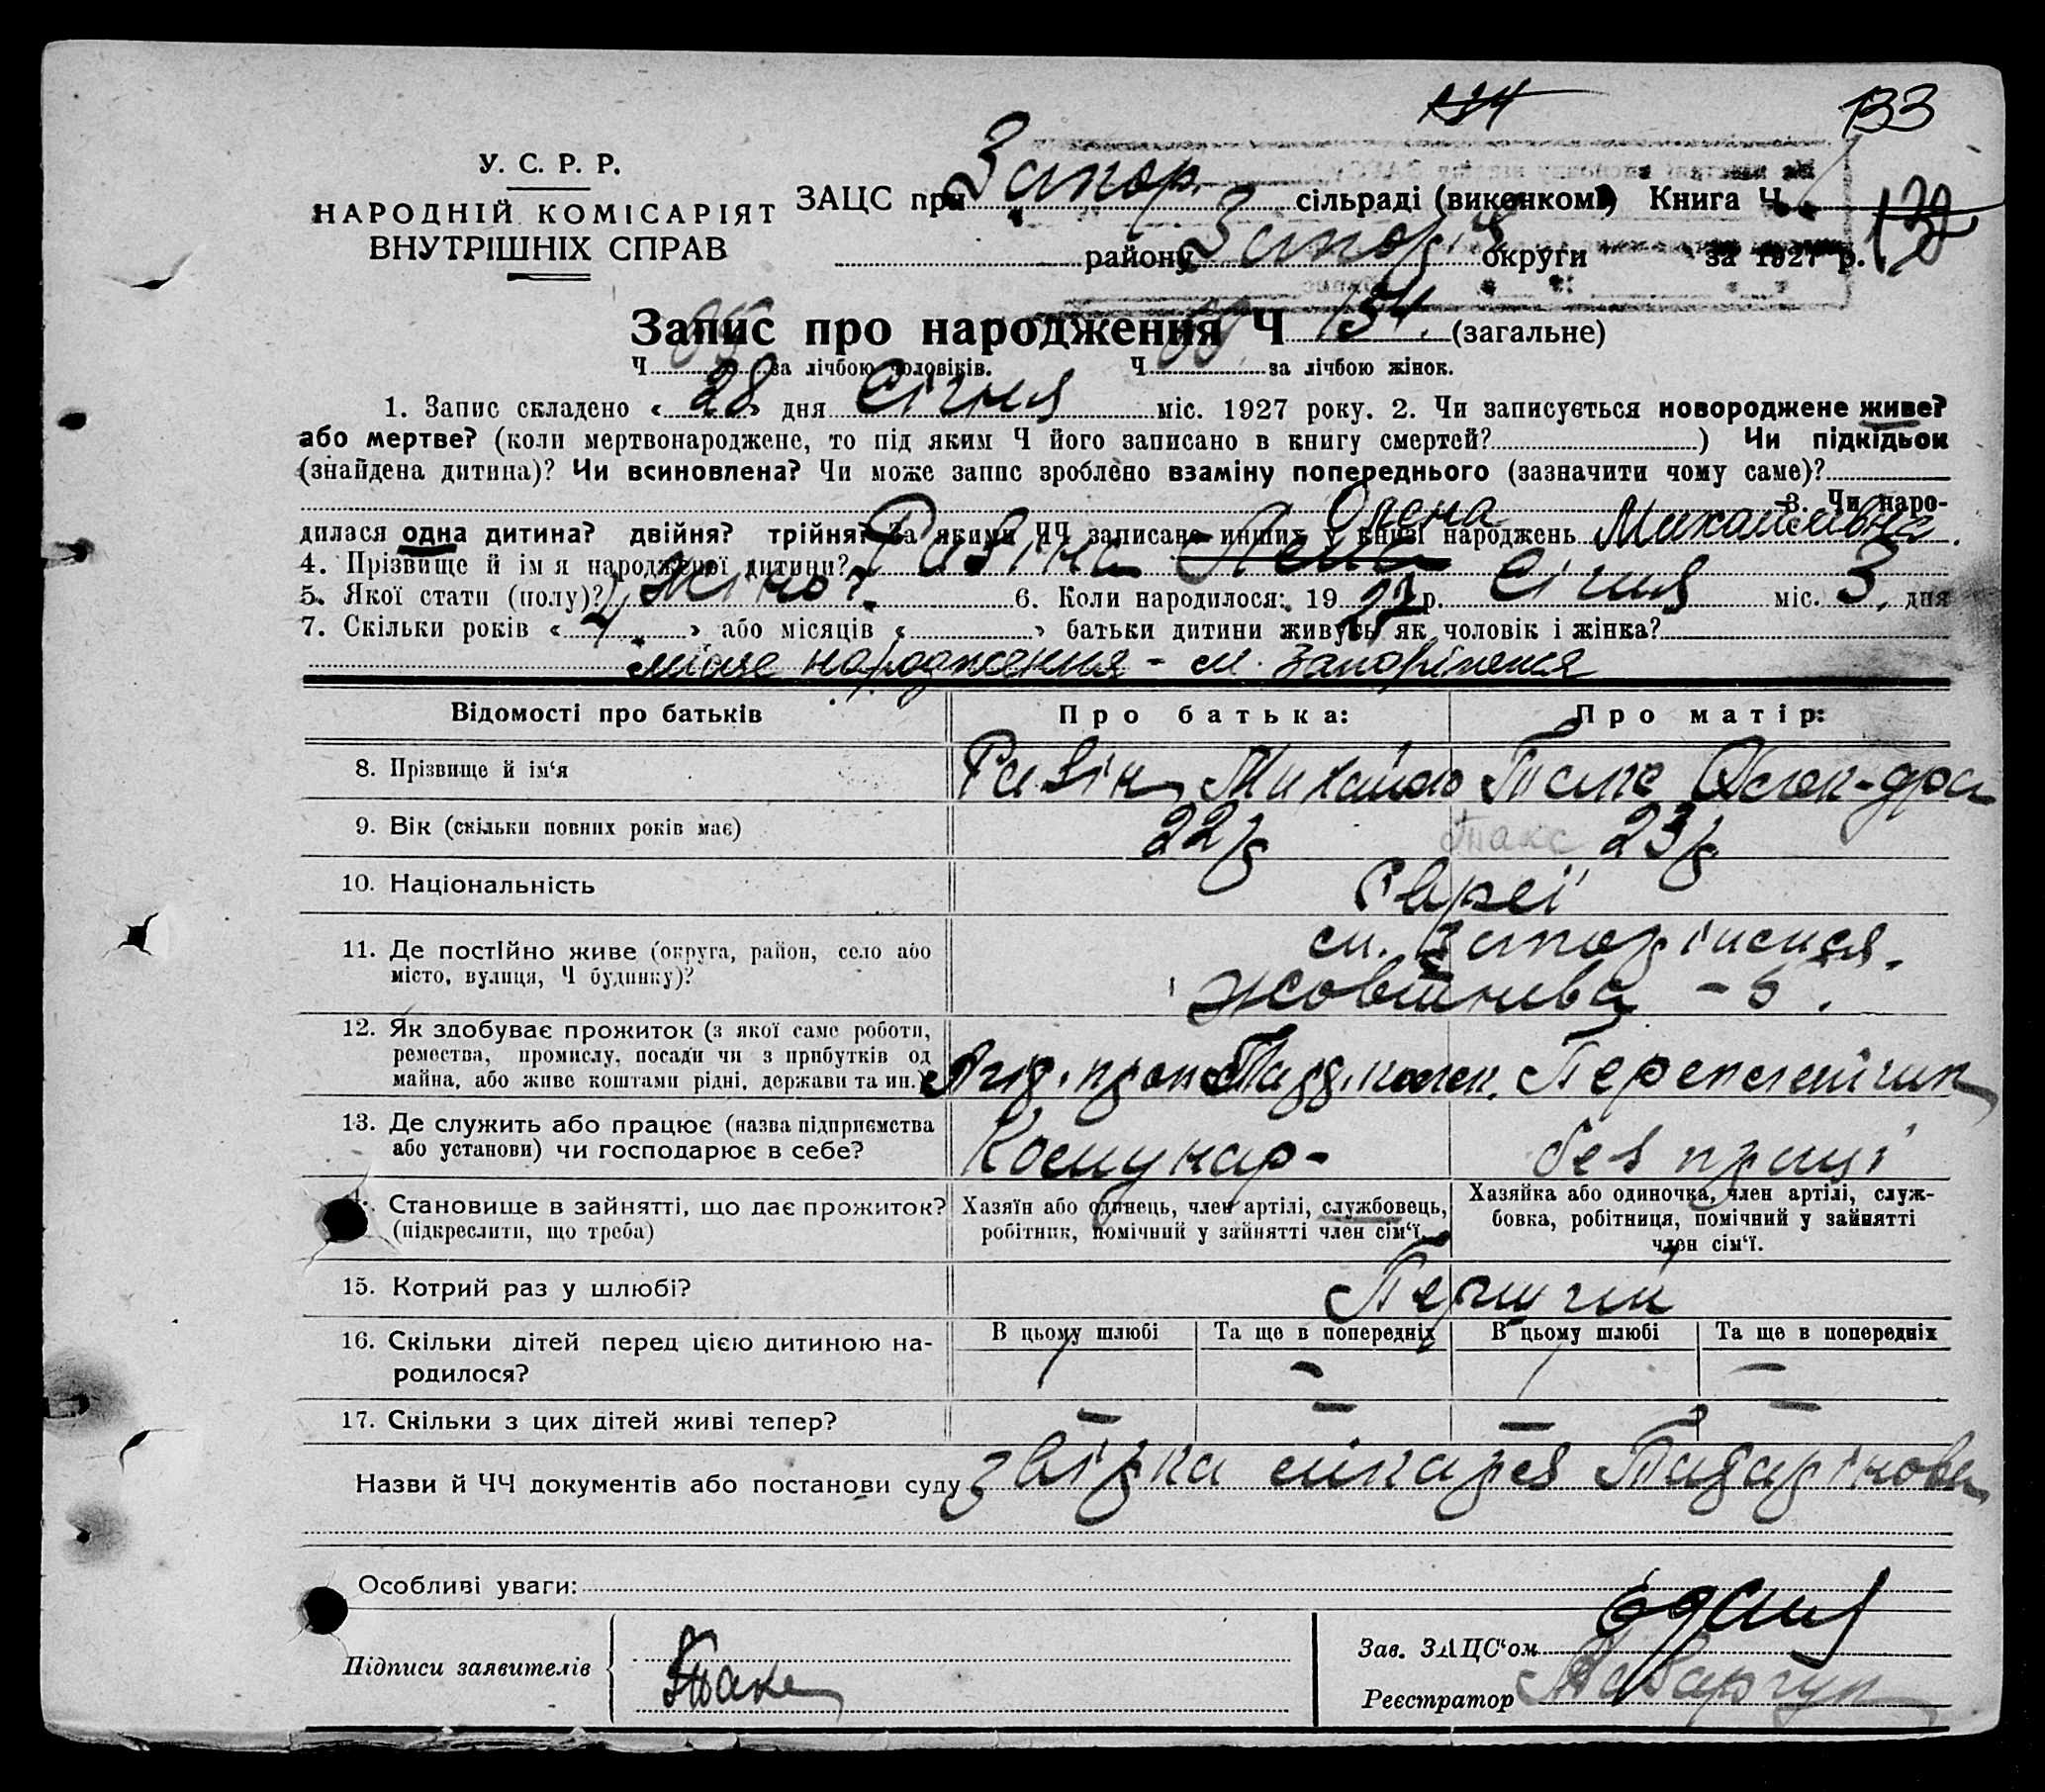 134 133
У. С. Р. Р.
НАРОДНІЙ КОМІСАРІЯТ
ВНУТРІШНІХ СПРАВ
ЗАЦС при Запор. сільраді (виконкомі) Книга Ч.
району Запоріз. округи за 1927 р. 132
Запис про народження Ч 154 (загальне)
Ч за лічбою чоловіків. Ч 69 за лічбою жінок.
1. Запис складено « 28 » дня Січня міс. 1927 року. 2. Чи записується новороджене живе?
або мертве? (коли мертвонароджене, то під яким Ч його записано в книгу смертей? ) Чи підкідьок
(знайдена дитина)? Чи всиновлена? Чи може запис зроблено взаміну попереднього (зазначити чому саме)?
3. Чи наро-
дилася одна дитина? двійня? трійня? За якими ЧЧ записано инших у книзі народжень
Олена Михайлівна.
4. Прізвище й ім я народженої дитини? Равіна Лена
5. Якої стати (полу)? Жіноч. 6. Коли народилося: 19 27 р. Січня міс. 3. дня
7. Скільки років « » або місяців « » батьки дитини живуть як чоловік і жінка?
місце народження - м. Запоріжжя
Відомості про батьків Про батька: Про матір:
8. Прізвище й ім‘я Равін Михайло Такс Олек-дра
9. Вік (скільки повних років має) 22 р Такс 23 р
10. Національність Євреї
11. Де постійно живе (округа, район, село або
місто, вулиця, Ч будинку)?
м. Запоріжжя.
Жовтнева - 5.
12. Як здобуває прожиток (з якої саме роботи,
ремества, промислу, посади чи з прибутків од
майна, або живе коштами рідні, держави та ин.)
Перепльотчик
13. Де служить або працює (назва підприємства
або установи) чи господарює в себе?
Комунар- без праці
14. Становище в зайнятті, що дає прожиток?
(підкреслити, що треба)
Хазяїн або одинець, член артілі, службовець,
робітник, помічний у зайнятті член сім‘ї.
Хазяйка або одиночка, член артілі, служ-
бовка, робітниця, помічний у зайнятті
член сім‘ї.
15. Котрий раз у шлюбі? Перший
16. Скільки дітей перед цією дитиною на-
родилося?
В цьому шлюбі Та ще в попередніх В цьому шлюбі Та ще в попередніх
1 – 1 –
17. Скільки з цих дітей живі тепер? – – – –
Назви й ЧЧ документів або постанови суду Звірка лікаря
Особливі уваги:
Підписи заявителів Такс
Зав. ЗАЦС‘ом
Реєстратор